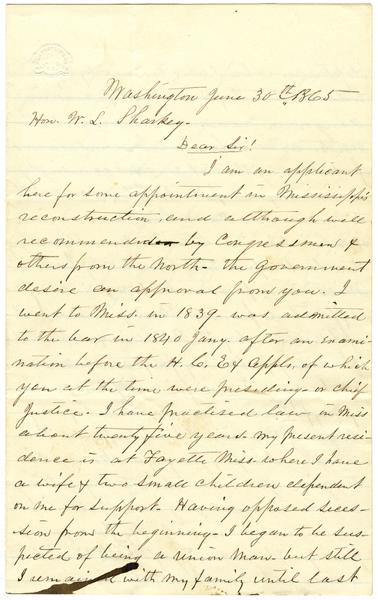 Washington June 30th 1865
Hon. W. L. Sharkey.
Dear Sir!
I am an applicant
here for some appointment in Mississippi's
reconstruction, and although well
recommended by Congressmen &
others from the North - the Government
desire an approval from you. I
went to Miss. in 1839 was admitted
to the bar in 1840 Jany. after an exami-
nation before the H. C. E & Appls, of which
you at the time were presiding - or chief
Justice. I have practised law in Miss
about twenty five years - my present resi-
dence is at Fayette Miss where I have
a wife & two small children dependent
on me for support - Having opposed seces-
sion from the beginning - I began to be sus-
pected of being a union man - but still
I remained with my family until last